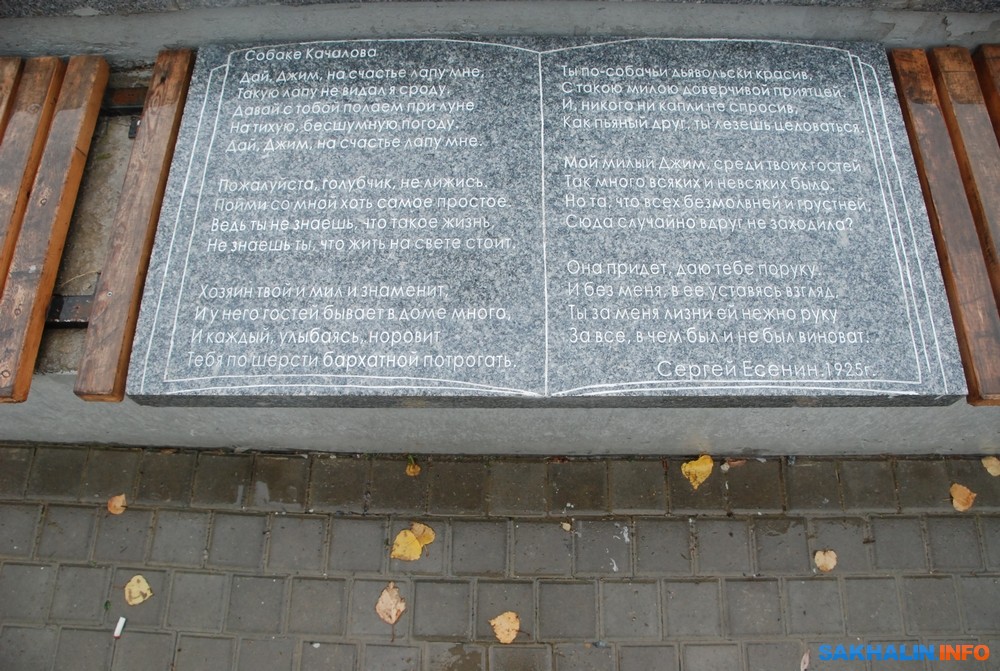 Собаке Качалова
Дай, Джим, на счастье лапу мне,
Такую лапу не видал я сроду.
Давай с тобой полаем при луне
На тихую, бесшумную погоду.
Дай, Джим, на счастье лапу мне.
Пожалуйста, голубчик, не лижись.
Пойми со мной хоть самое простое.
Ведь ты не знаешь, что такое жизнь,
Не знаешь ты, что жить на свете стоит.
Хозяин твой и мил и знаменит,
И у него гостей бывает в доме много,
И каждый, улыбаясь, норовит
Тебя по шерсти бархатной потрогать.
Ты по-собачьи дьявольски красив,
С такою милою доверчивой приятцей.
И, никого ни капли не спросив,
Как пьяный друг, ты лезешь целоваться.
Мой милый Джим, среди твоих гостей
Так много всяких и невсяких было.
Но та, что всех безмолвней и грустней,
Сюда случайно вдруг не заходила?
Она придет, даю тебе поруку.
И без меня, в ее уставясь взгляд,
Ты за меня лизни ей нежно руку
За все, в чем был и не был виноват.
Сергей Есенин. 1925г.
SAKHALIN.INFO